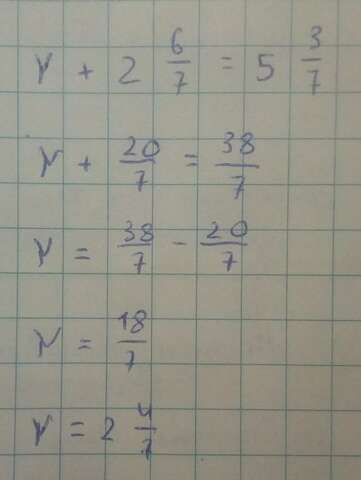 y + 2 6/7 = 5 3/7
y + 20/7 = 38/7
y = 38/7 - 20/7
y = 18/7
y = 2 4/7